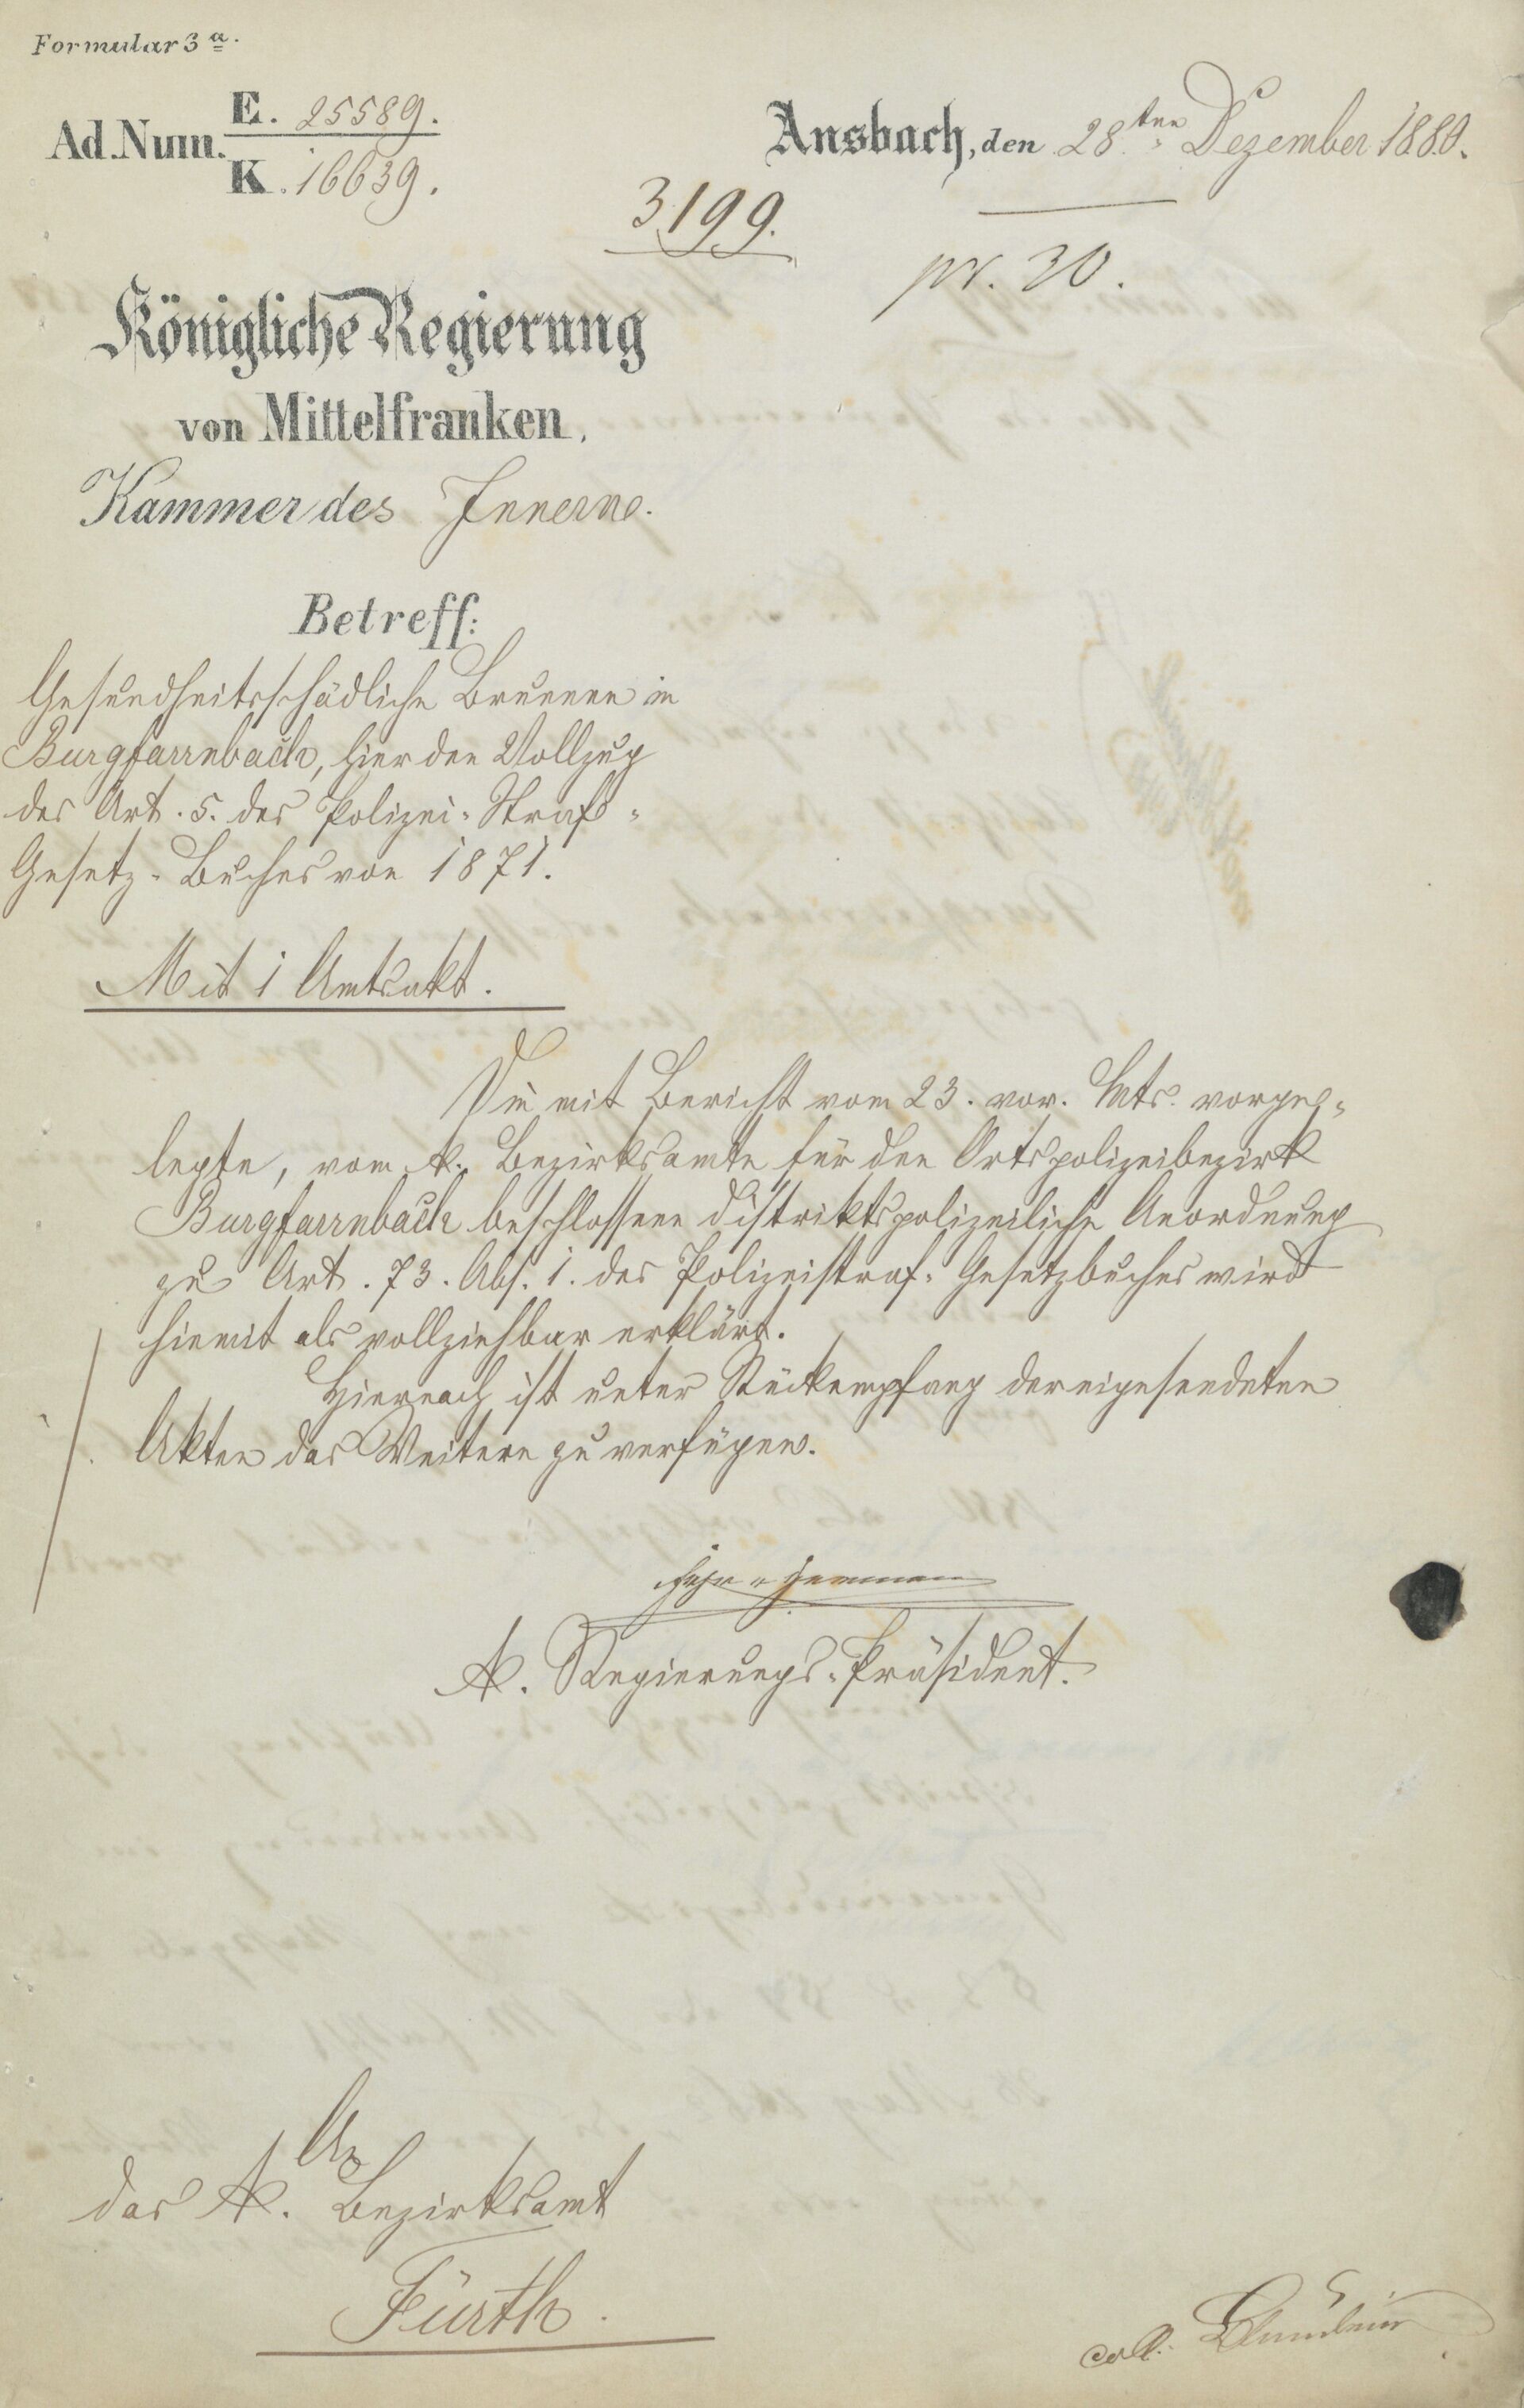 Formular 3 a.
Ad. Num. E. 25589.
K. 16639.
Ansbach, den 28.ten Dezember 1880.
3199.
pr. 30.
Königliche Regierung
von Mittelfranken,
Kammer des Innern.
Betreff:
Gesundheitsschädliche Brunnen in
Burgfarrnbach, hier den Vollzug
des Art. 5. des Polizei-Straf-
Gesetz-Buches von 1871.
Mit 1 Amtsakt.
Die mit Bericht vom 23. vor. Mts. vorge-
legte, vom k. Bezirksamte für den Ortspolizeibezirk
Burgfarrnbach beschlossene distriktspolizeiliche Anordnung
zu Art. 73. Abs. 1. des Polizeistraf-Gesetzbuches wird
hiemit als vollziehbar erklärt.
Hiernach ist unter Rückempfang der eingesendeten
Akten das Weitere zu verfügen.
K. Regierungs-Präsident.
An
das K. Bezirksamt
Fürth.
coll.